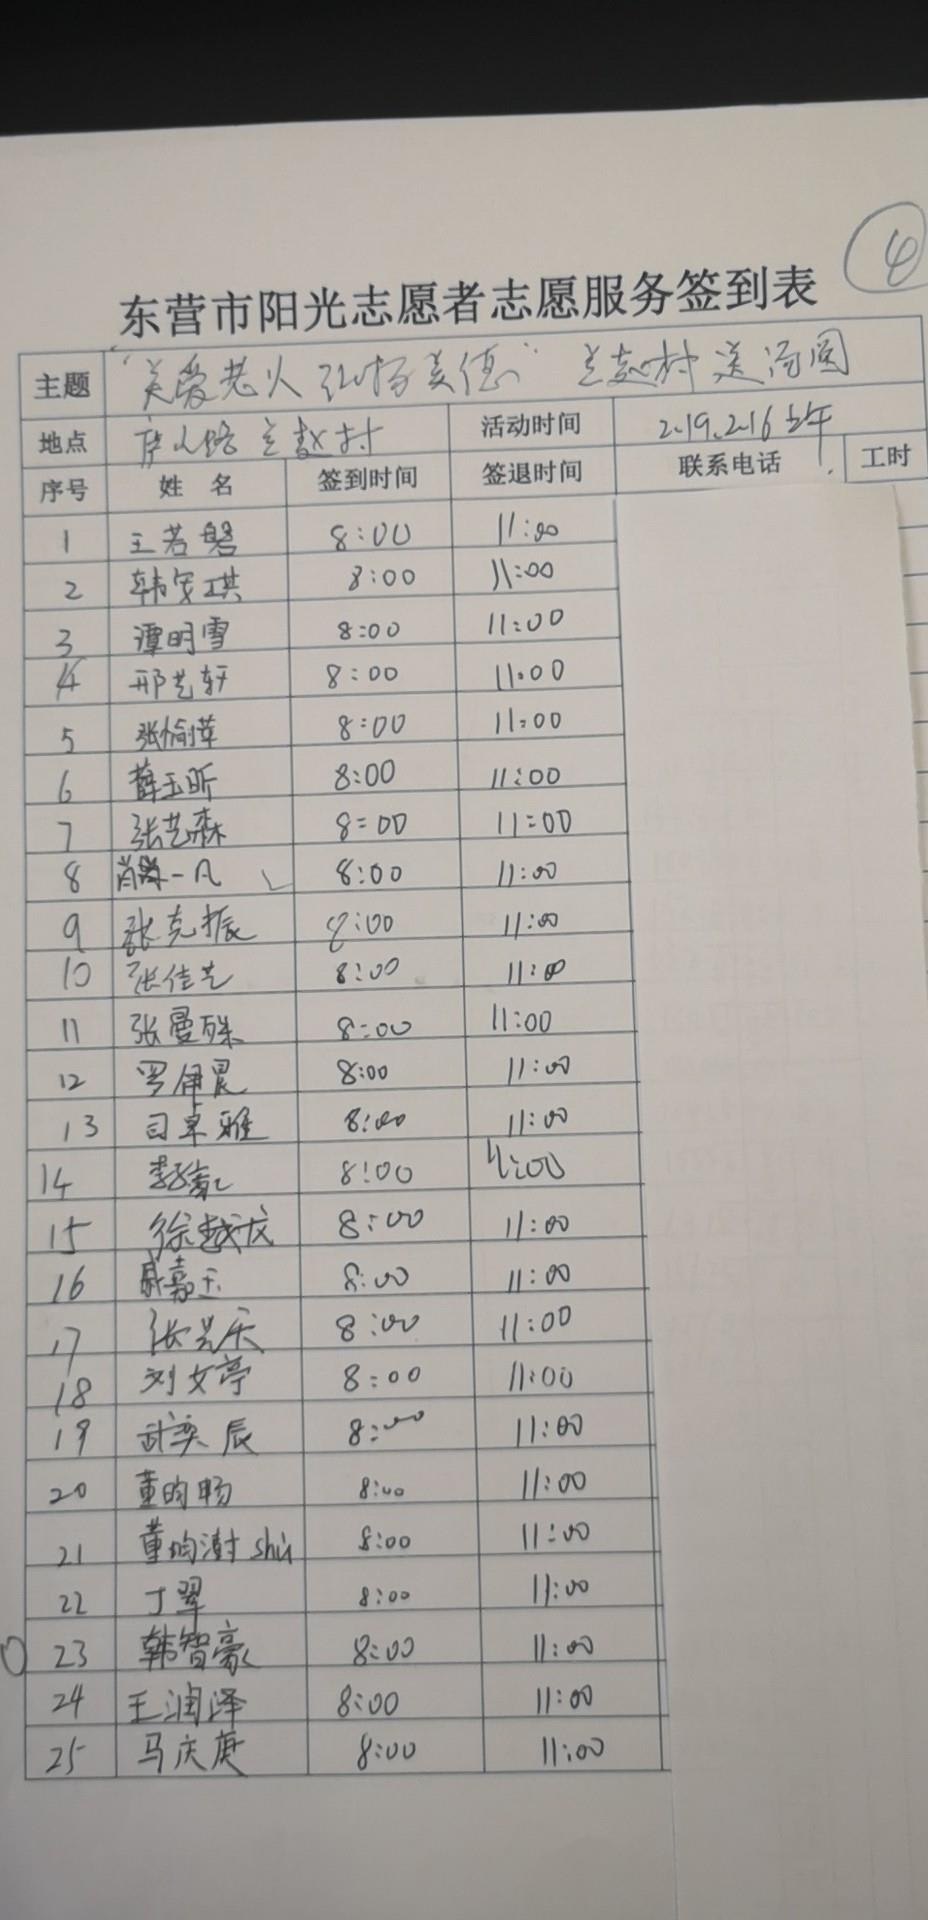 ④
东营市阳光志愿者志愿服务签到表
主题 "关爱老人 弘扬美德" 兰赵村 送汤圆
地点 庐山路兰赵村 活动时间 2.19.2.16上午
序号 姓名 签到时间 签退时间 联系电话 工时
1 王若磐 8:00 11:00
2 韩安琪 8:00 11:00
3 谭明雪 8:00 11:00
4 邢艺轩 8:00 11:00
5 张愉苹 8:00 11:00
6 薛玉昕 8:00 11:00
7 张艺森 8:00 11:00
8 肖一凡 8:00 11:00
9 张克振 8:00 11:00
10 张佳艺 8:00 11:00
11 张曼殊 8:00 11:00
12 罗伊晨 8:00 11:00
13 司卓雅 8:00 11:00
14 8:00 11:00
15 徐越龙 8:00 11:00
16 嘉玉 8:00 11:00
17 张昊天 8:00 11:00
18 刘文亭 8:00 11:00
19 武奕辰 8:00 11:00
20 董昀畅 8:00 11:00
21 董均澍 shù 8:00 11:00
22 丁翠 8:00 11:00
23 韩智豪 8:00 11:00
24 王润泽 8:00 11:00
25 马庆庚 8:00 11:00